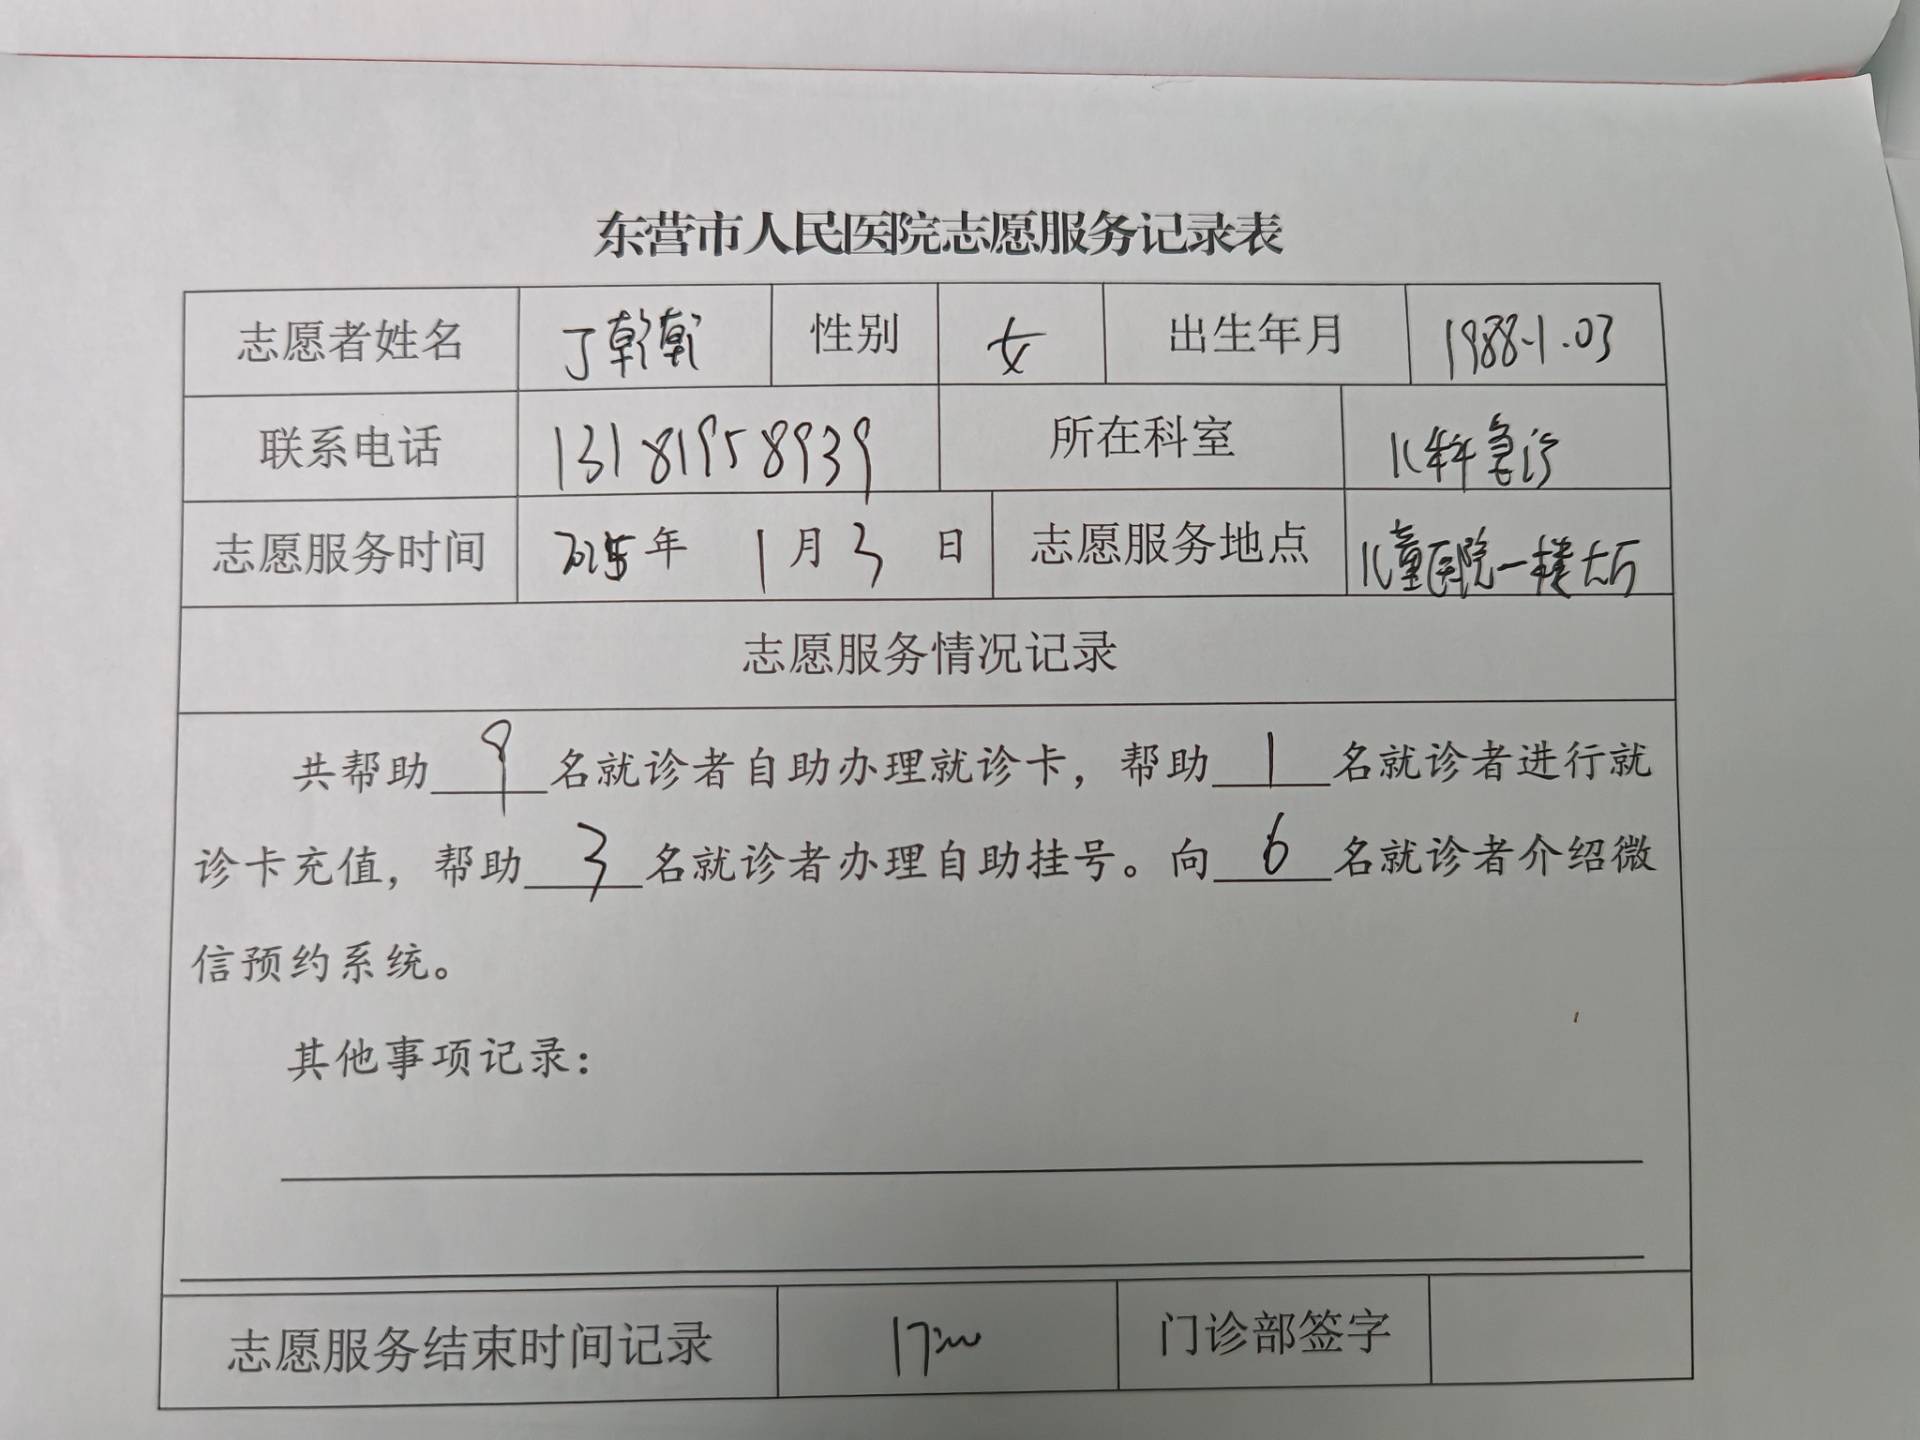 东营市人民医院志愿服务记录表
志愿者姓名 丁乾乾 性别 女 出生年月 1988.1.03
联系电话 13181958939 所在科室 儿科急诊
志愿服务时间 2025年 1月3日 志愿服务地点 儿童医院一楼大厅
志愿服务情况记录
共帮助9名就诊者自助办理就诊卡，帮助1名就诊者进行就
诊卡充值，帮助3名就诊者办理自助挂号。向6名就诊者介绍微
信预约系统。
其他事项记录：
志愿服务结束时间记录 17:00 门诊部签字